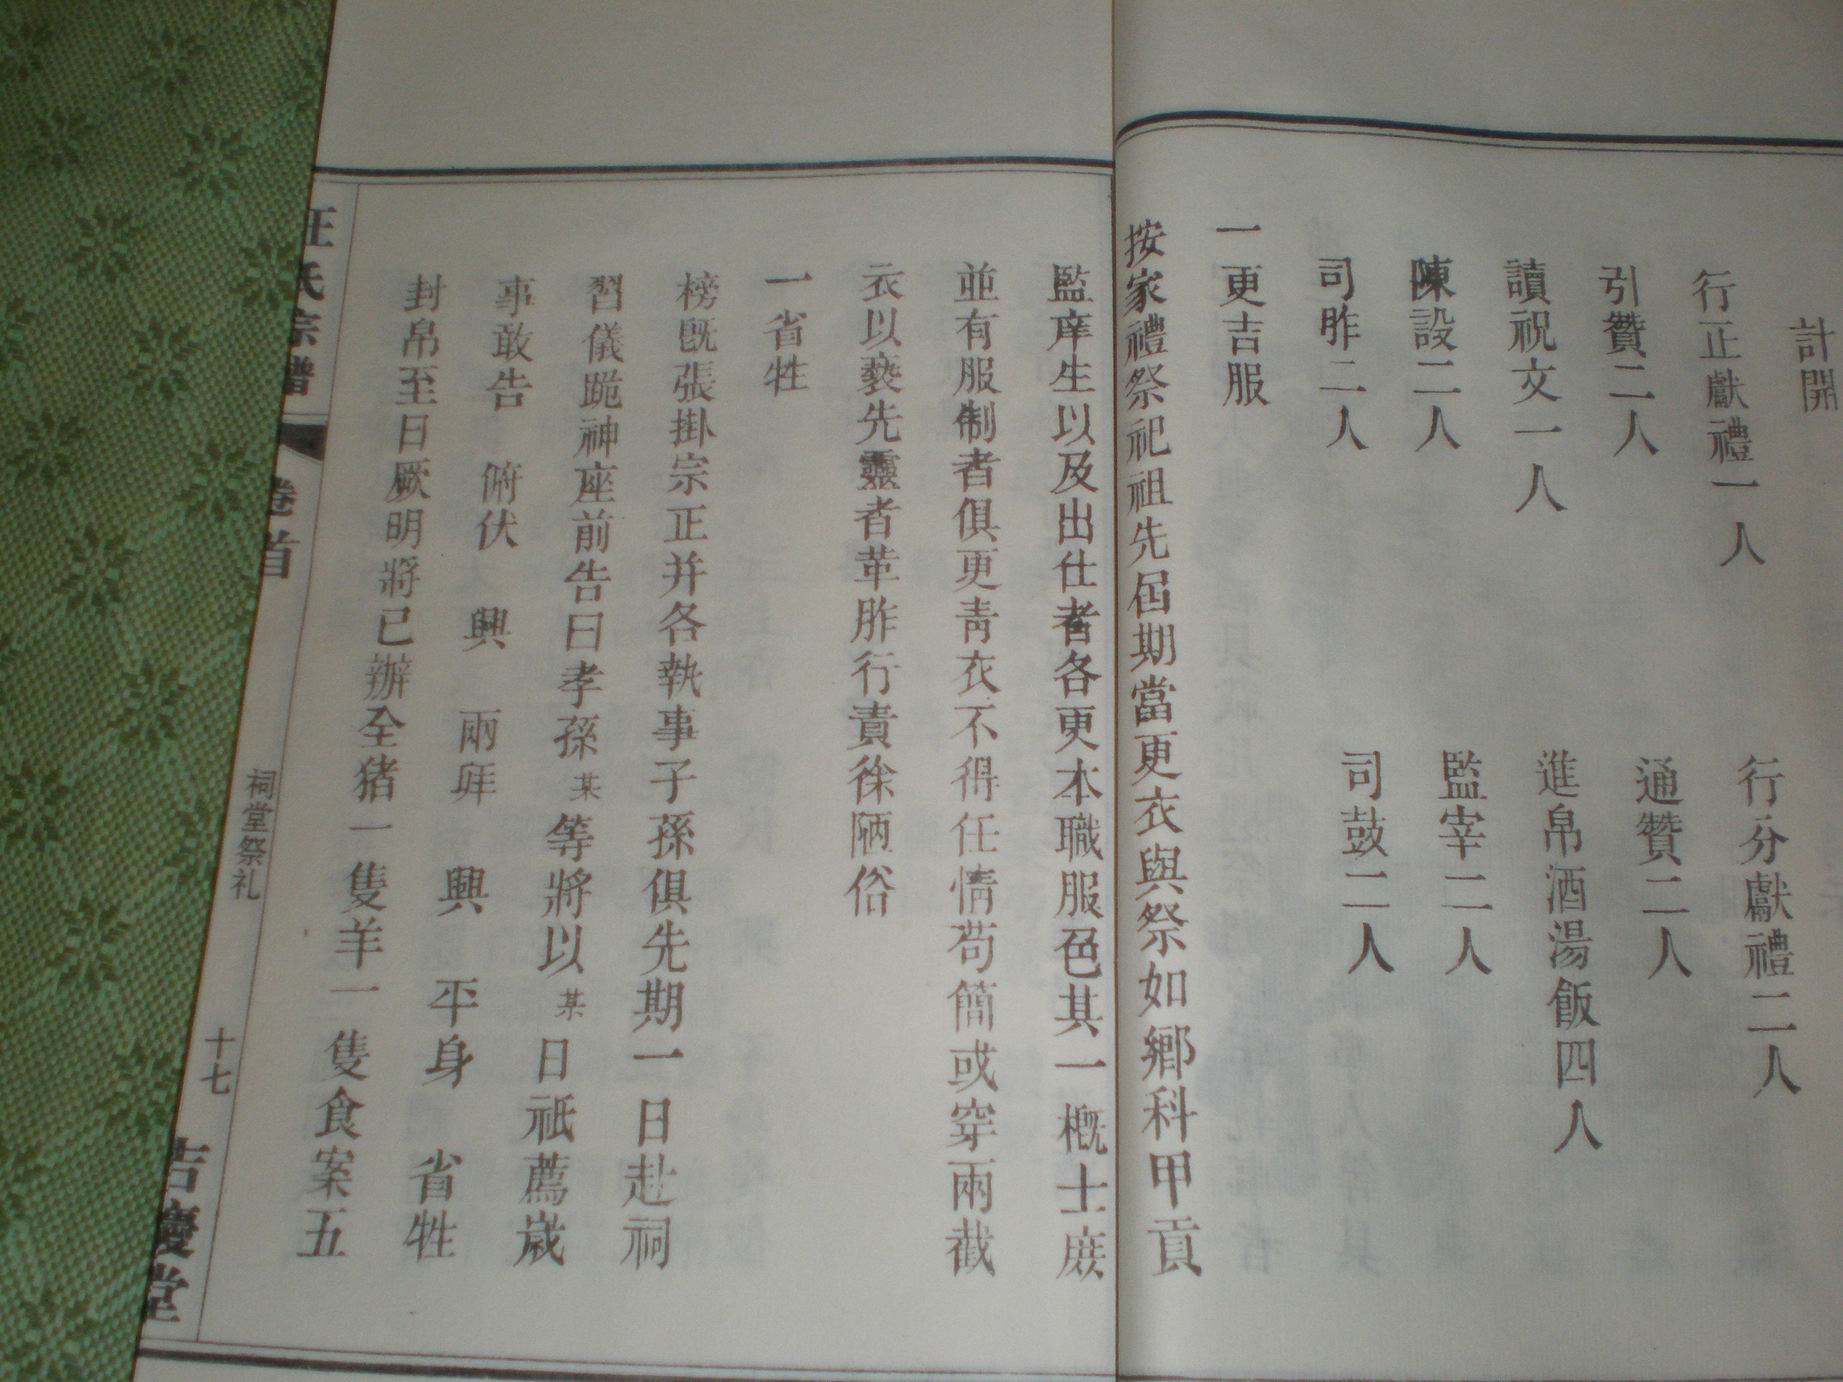 計開
行正獻禮一人　行分獻禮二人
引贊二人　通贊二人
讀祝文一人　進帛酒湯飯四人
陳設二人　監宰二人
司胙二人　司鼓二人
一更吉服
按家禮祭祀祖先屆期當更衣與祭如鄉科甲貢
監庠生以及出仕者各更本職服色其一概士庶
並有服制者俱更青衣不得任情苟簡或穿兩截
衣以褻先靈者革胙行責徐陋俗
一省牲
榜旣張掛宗正并各執事子孫俱先期一日赴祠
習儀跪神座前告曰孝孫某等將以某日祇薦歲
事敢告　俯伏　興　兩拜　興　平身　省牲
封帛至日厥明將已辦全猪一隻羊一隻食案五
汪氏宗譜　卷首　祠堂祭礼　十七　吉慶堂